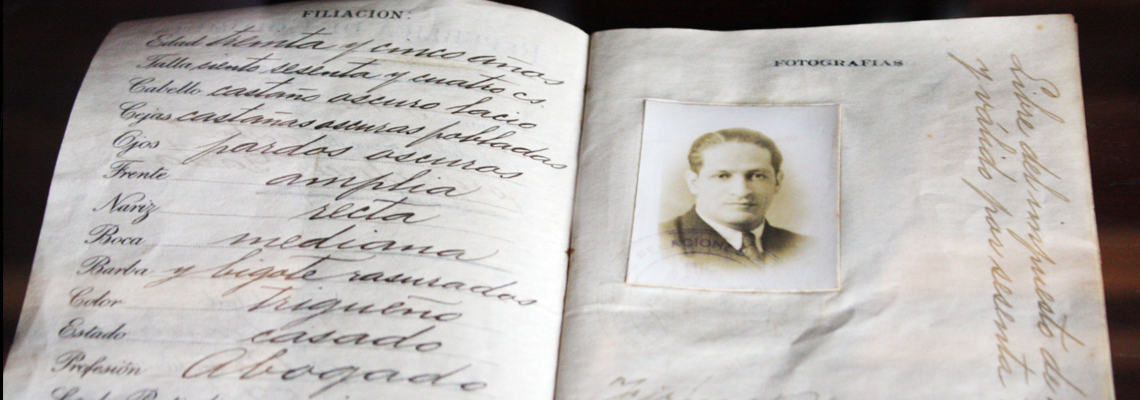 FILIACION:
Edad treinta y cinco años
Talla ciento sesenta y cuatro cs.
Cabello castaño oscuro lacio
Cejas castañas oscuras pobladas
Ojos pardos oscuros
Frente amplia
Nariz recta
Boca mediana
Barba y bigote rasurados
Color trigueño
Estado casado
Profesión Abogado
FOTOGRAFIAS
Libre del impuesto de
y válido por sesenta